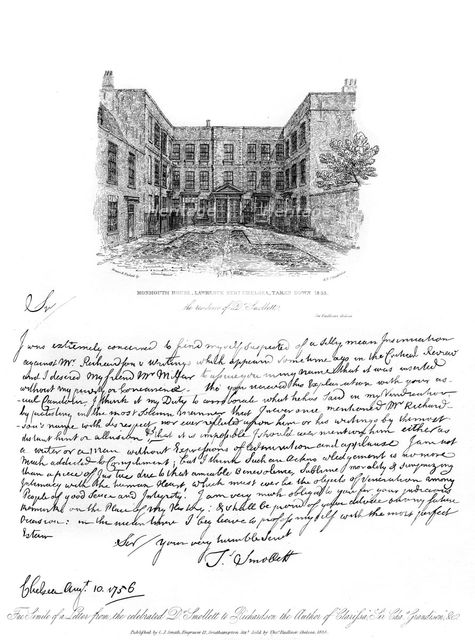 MONMOUTH HOUSE, LAWRENCE STREET CHELSEA, TAKEN DOWN 1835.
the residence of Dr. Smollett.
See Faulkners Chelsea
Sir
I was extremely concerned to find myself suspected of a silly mean Insinuation
against Mr. Richardson's writings which appeared some time ago in the Critical Review
and I desired my friend Mr. Millar to assure you in my name that it was inserted
without my privity or Concurrence. tho' you received this Explanation with your us-
ual Candour I think it my Duty to corroborate what he has said in my Vindication
by protesting in the most Solemn manner that I never once mentioned Mr. Richard-
son's name with disrespect nor ever reflected upon him or his writings by the most
distant hint or allusion & that it is impossible I should ever mention him either as
a writer or a man without Expressions of Veneration and applause. I am not
much addicted to Compliment; but I think Such an Acknowledgement is no more
than a piece of Justice due to that amiable Benevolence, Sublime morality & surprizing
Intimacy with the human Heart, which must ever be the objects of Veneration among
People of good Sense and Integrity. I am very much obliged to you for your judicious
remarks on the Plan of my History; & shall be proud of your advice on any future
Occasion: in the mean time I beg leave to profess myself with the most perfect
Esteem
Sir your very humble servt
Ts. Smollett
Chelsea Augt. 10. 1756
Fac Simile of a Letter from the celebrated Dr. Smollett to Richardson the Author of "Clarissa," "Sir Chas. Grandison," &c.
Published by C. J. Smith, Engraver, Southampton Sold by Thos. Faulkner Chelsea, 1835.
Heritage